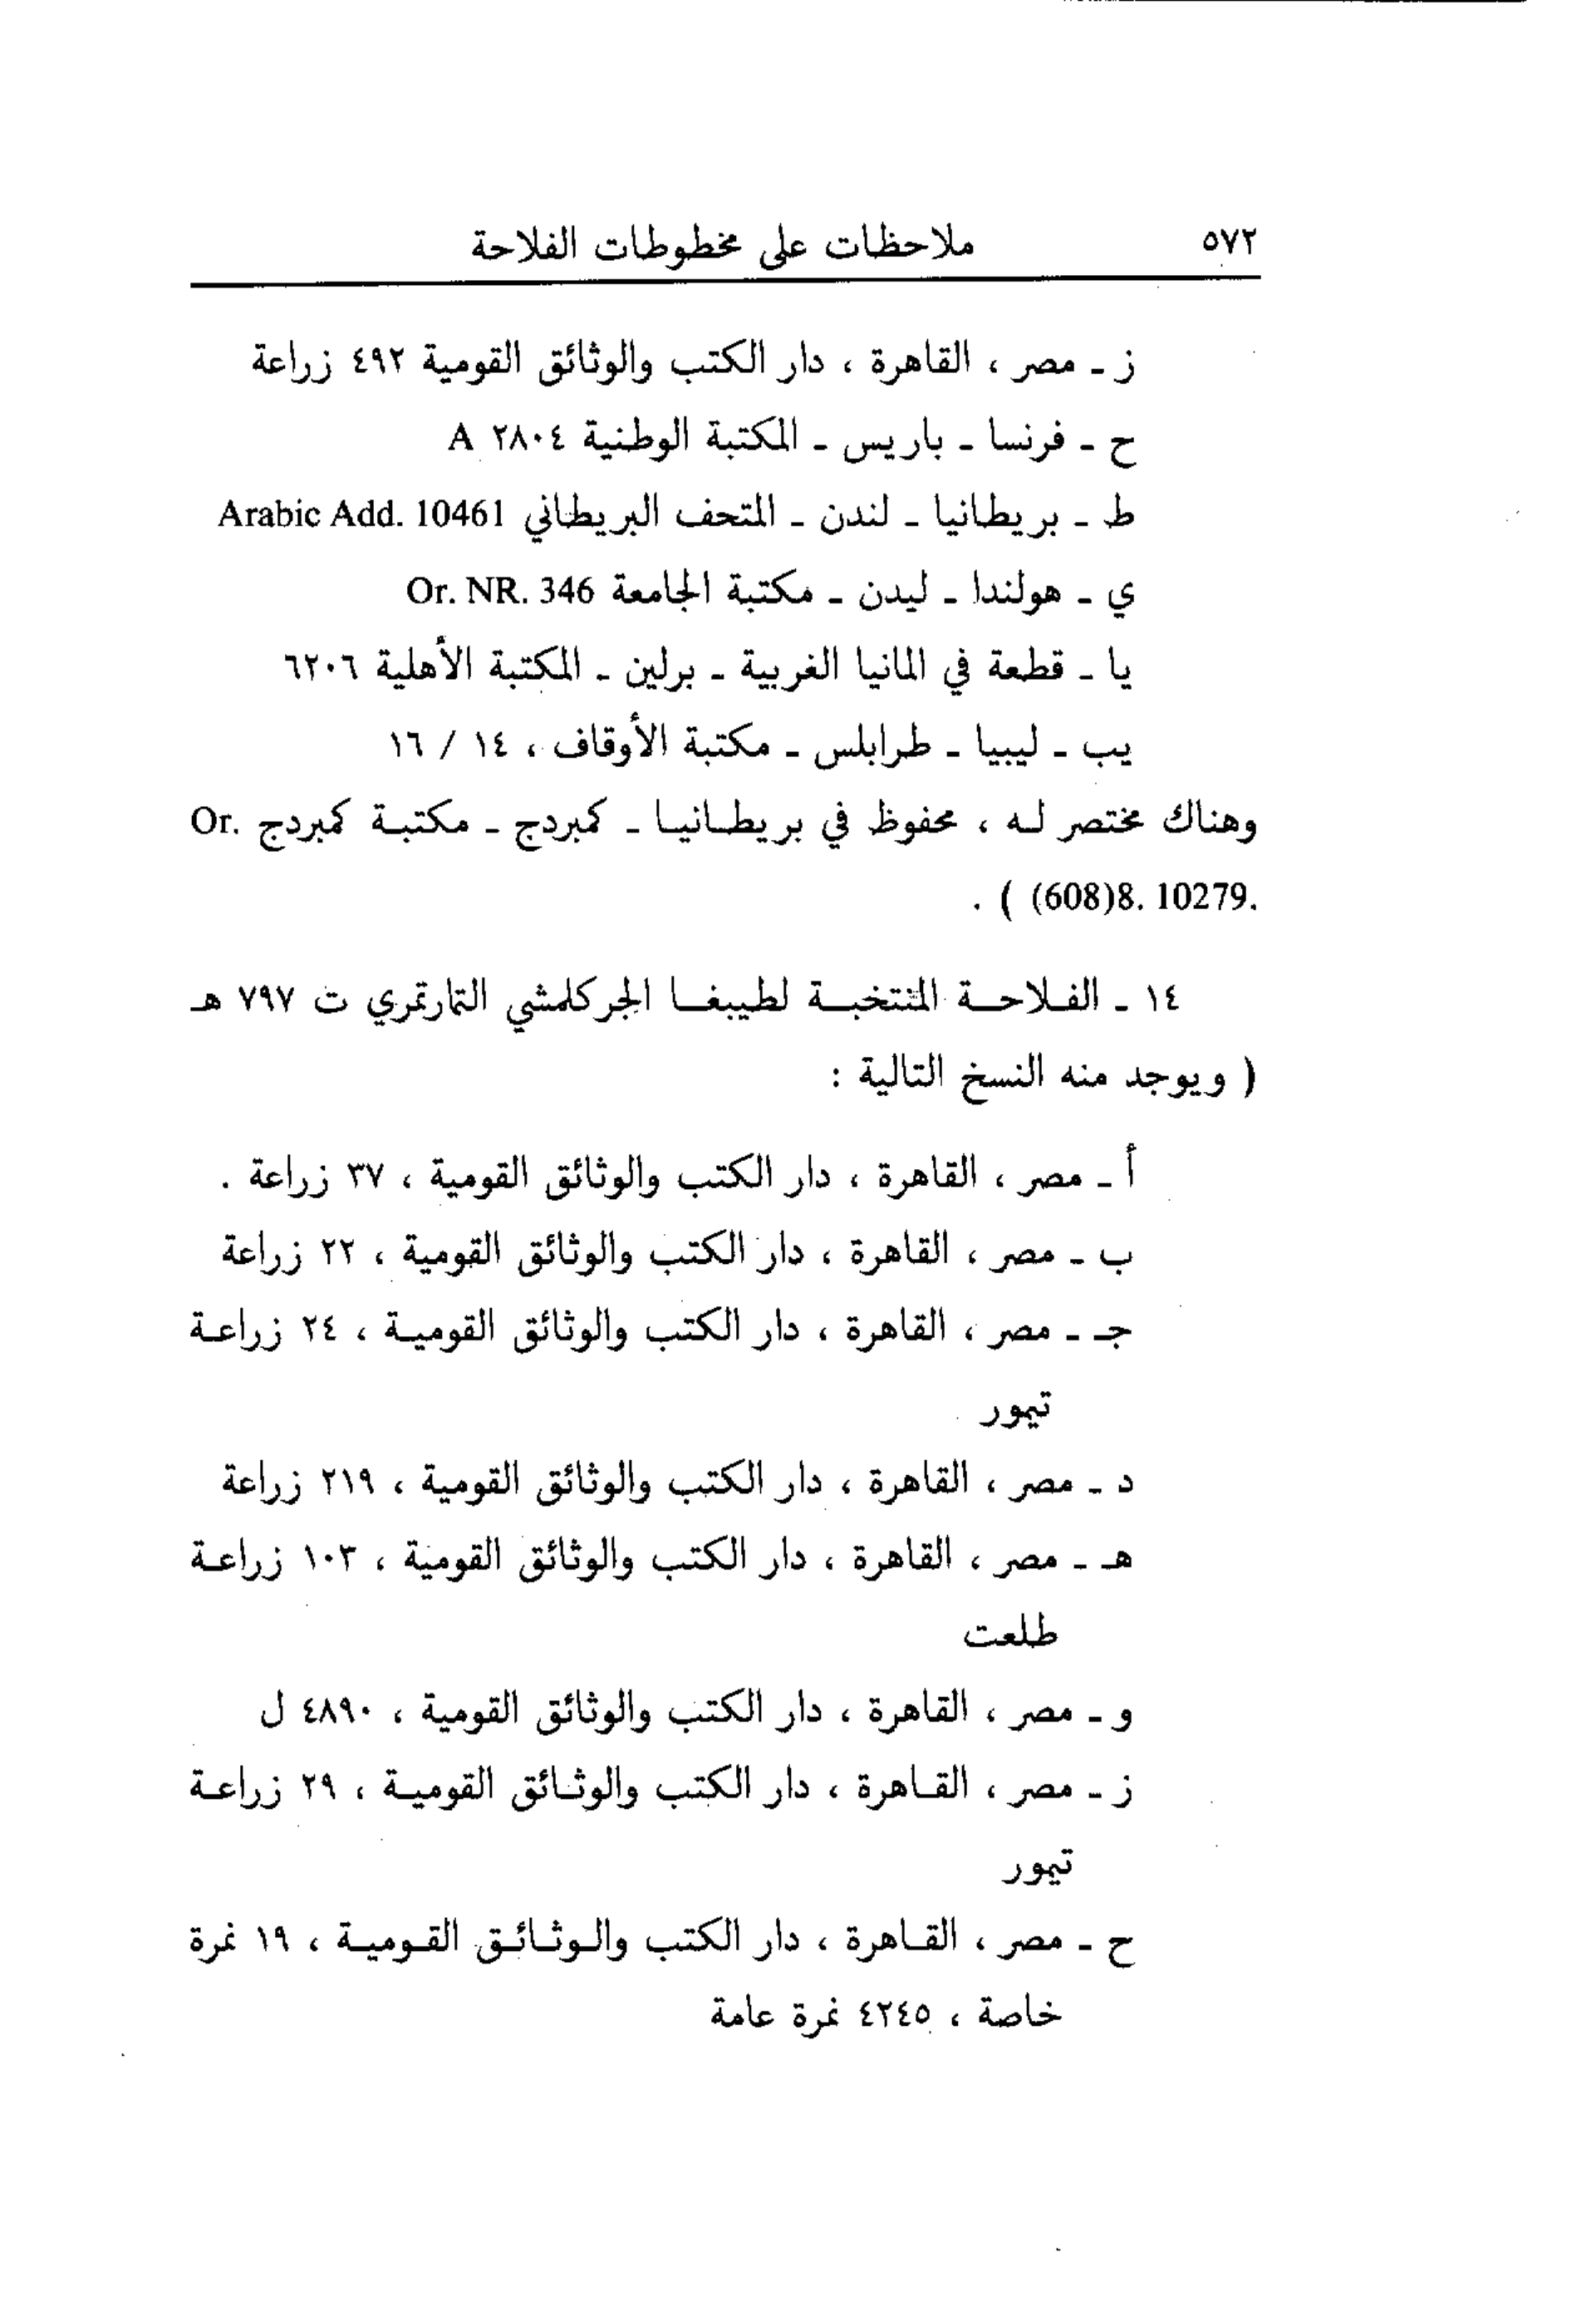 ٥٧٢ ملاحظات على مخطوطات الفلاحة
ز ـ مصر ، القاهرة ، دار الكتب والوثائق القومية ٤٩٢ زراعة
ح ـ فرنسا ـ باريس ـ المكتبة الوطنية ٢٨٠٤ A
ط ـ بريطانيا ـ لندن ـ المتحف البريطاني Arabic Add. 10461
ي ـ هولندا ـ ليدن ـ مكتبة الجامعة Or. NR. 346
يا ـ قطعة في المانيا الغربية ـ برلين ـ المكتبة الأهلية ٦٢٠٦
يب ـ ليبيا ـ طرابلس ـ مكتبة الأوقاف ، ١٤ / ١٦
وهناك مختصر له ، محفوظ في بريطانيا ـ كمبردج ـ مكتبة كمبردج Or.
(608)8. 10279. ) .
١٤ ـ الفلاحة المنتخبة لطيبغا الجركلمشي التمارتمري ت ٧٩٧ هـ
( ويوجد منه النسخ التالية :
أ ـ مصر ، القاهرة ، دار الكتب والوثائق القومية ، ٣٧ زراعة .
ب ـ مصر ، القاهرة ، دار الكتب والوثائق القومية ، ٢٢ زراعة
جـ ـ مصر ، القاهرة ، دار الكتب والوثائق القومية ، ٢٤ زراعة
تيمور
د ـ مصر ، القاهرة ، دار الكتب والوثائق القومية ، ٢١٩ زراعة
هـ ـ مصر ، القاهرة ، دار الكتب والوثائق القومية ، ١٠٣ زراعة
طلعت
و ـ مصر ، القاهرة ، دار الكتب والوثائق القومية ، ٤٨٩٠ ل
ز ـ مصر ، القاهرة ، دار الكتب والوثائق القومية ، ٢٩ زراعة
تيمور
ح ـ مصر ، القاهرة ، دار الكتب والوثائق القومية ، ١٩ نمرة
خاصة ، ٤٢٤٥ نمرة عامة